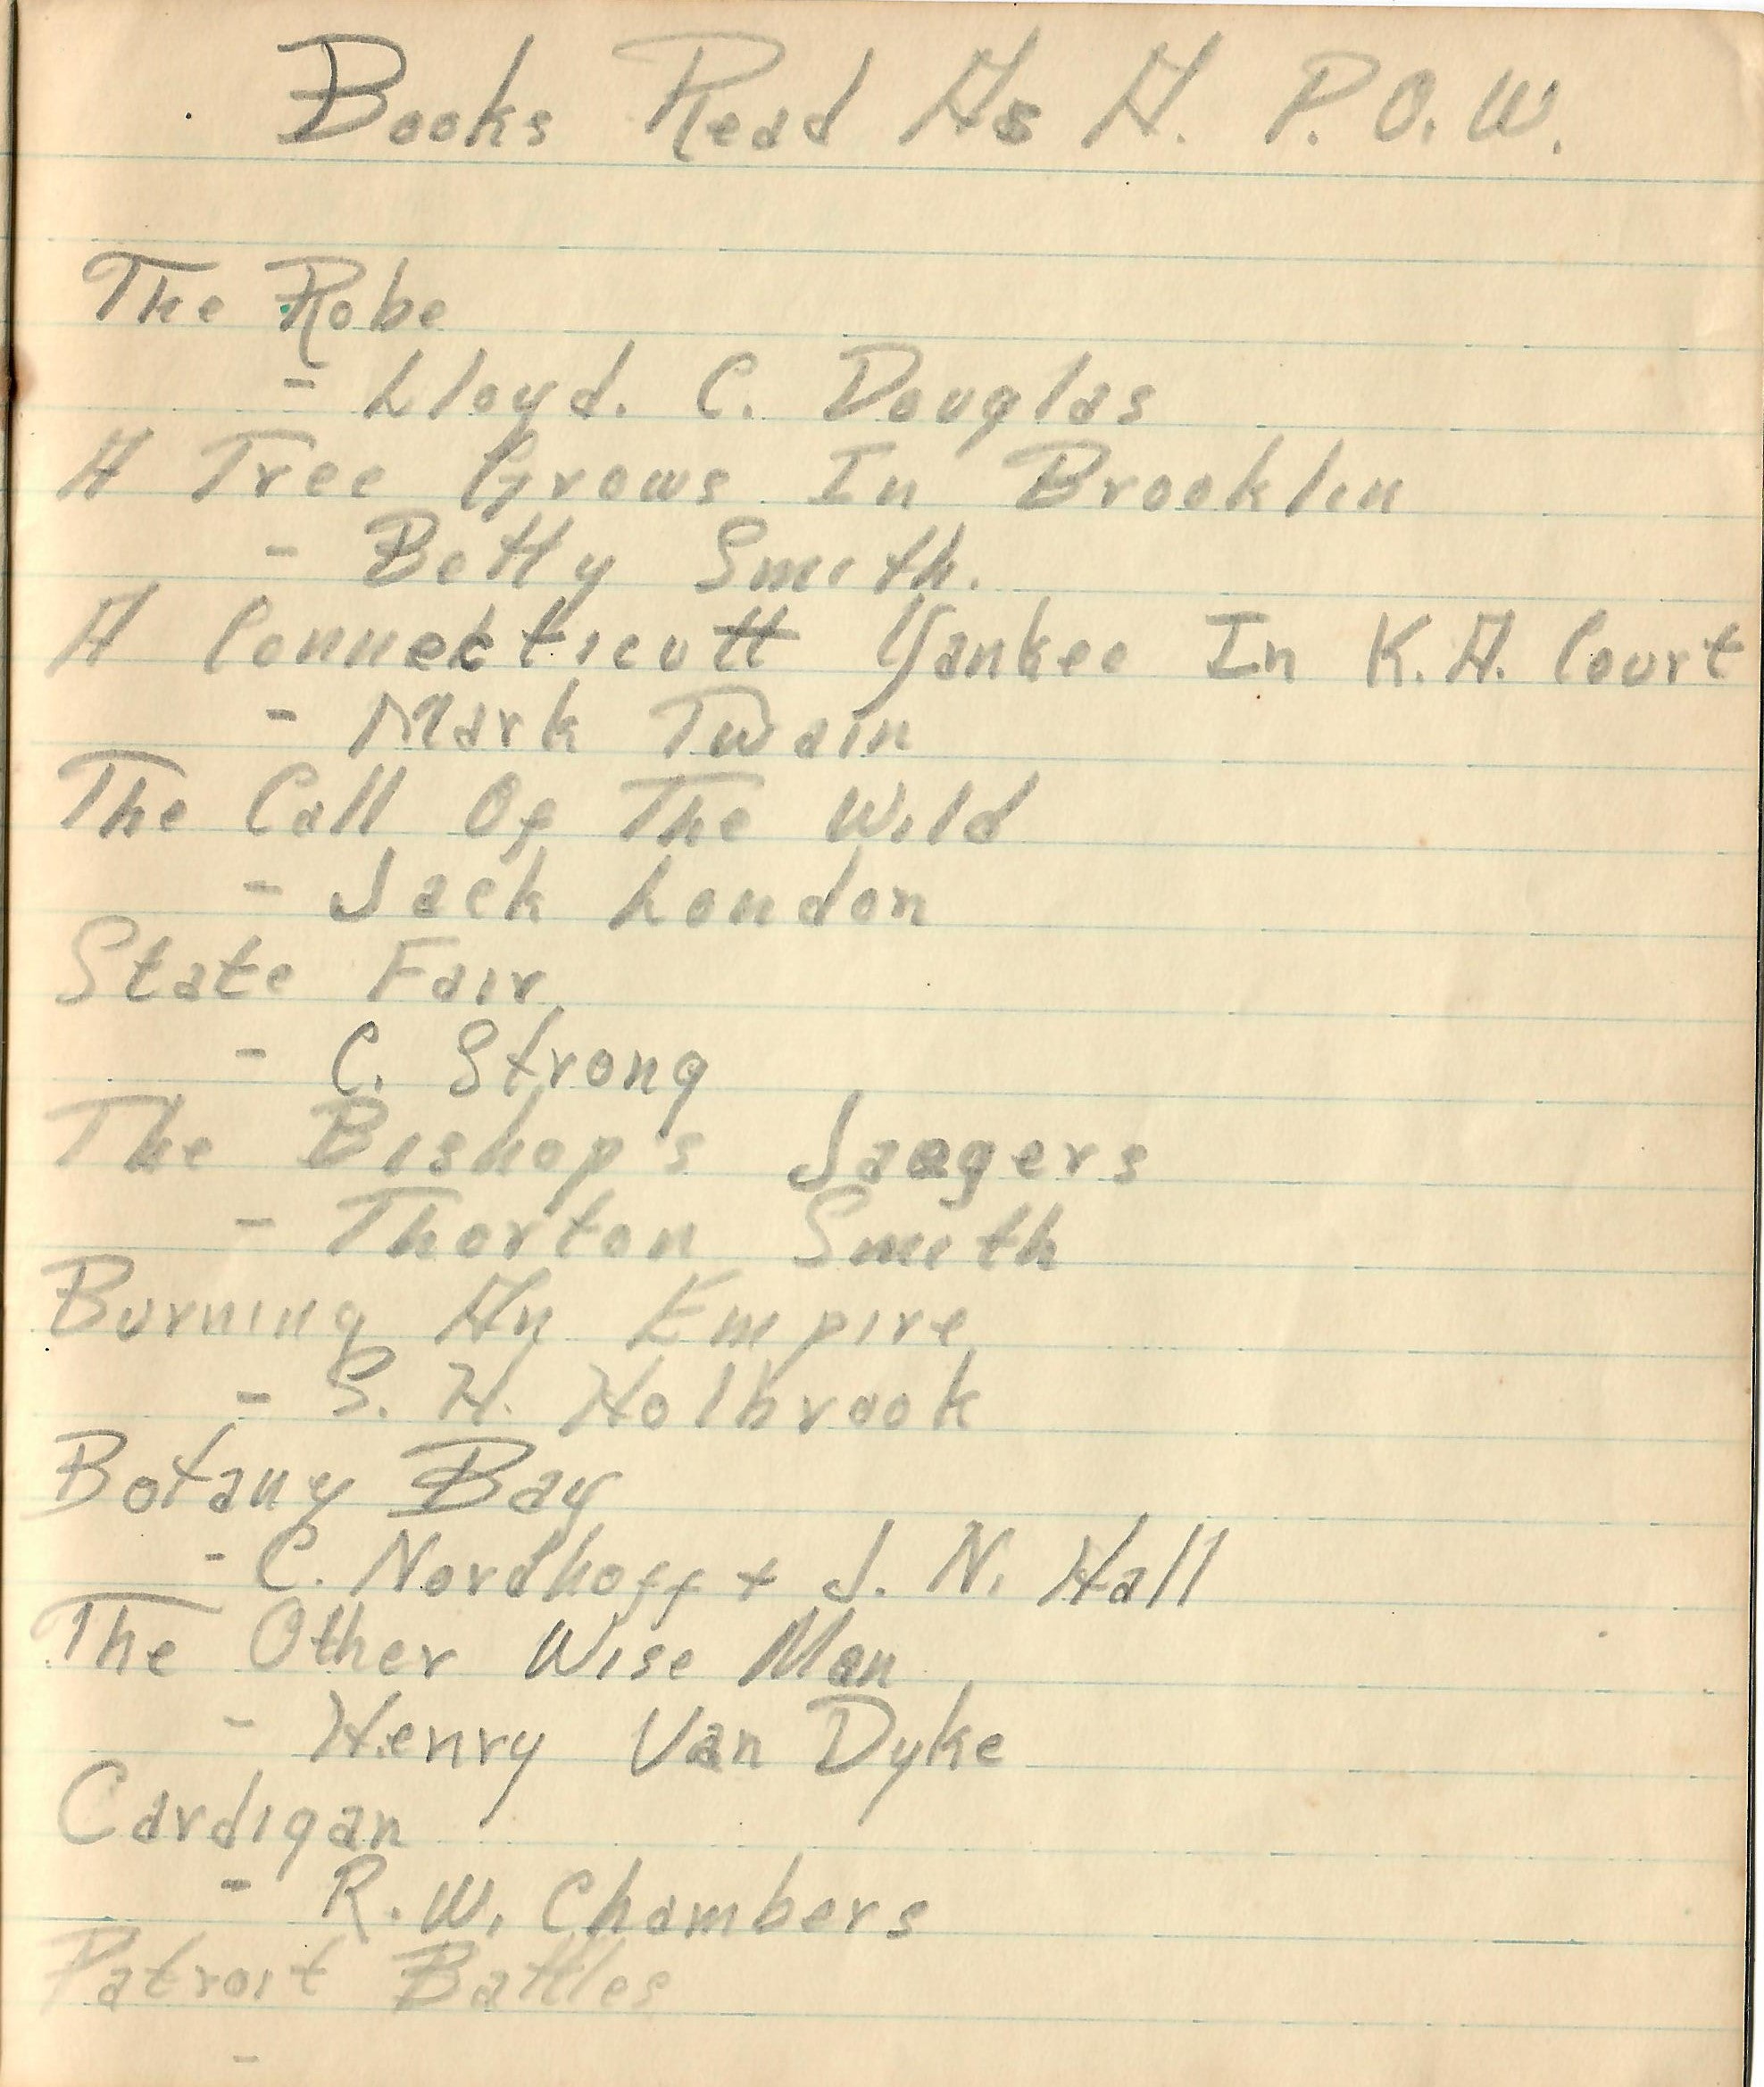 Books Read As A. P.O.W.
The Robe
- Lloyd. C. Douglas
A Tree Grows In Brooklin
- Betty Smith.
A Connecticutt Yankee In K.A. Court
- Mark Twain
The Call Of The Wild
- Jack London
State Fair
- C. Strong
The Bishop's Jaegers
- Thorton Smith
Burning An Empire
- S. H. Holbrook
Botany Bay
- C. Nordhoff + J. N. Hall
The Other Wise Man
- Henry Van Dyke
Cardigan
- R. W. Chambers
Patroit Battles
-